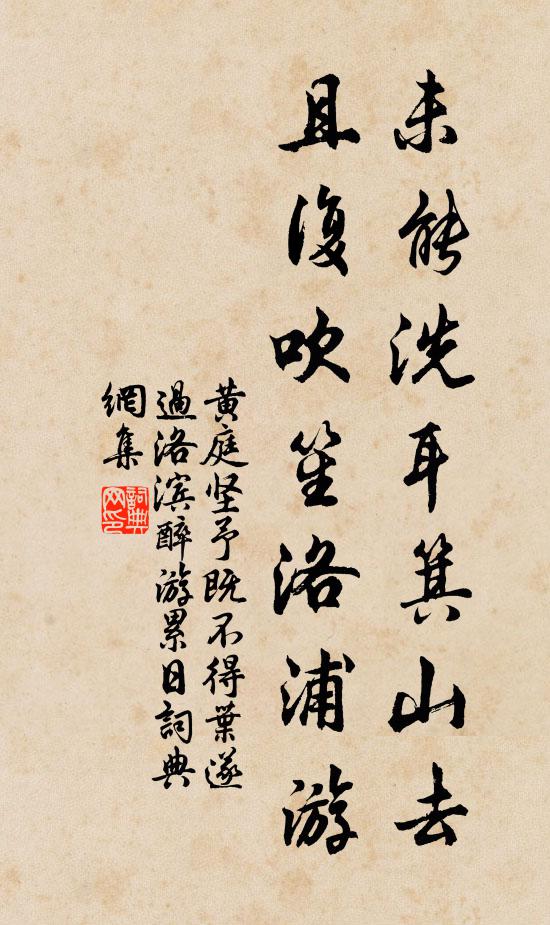 未能洗耳箕山去
且復吹笙洛浦游
黄庭坚予既不得葉遂
過洛滨醉游累日詞典
網集
詞典網印